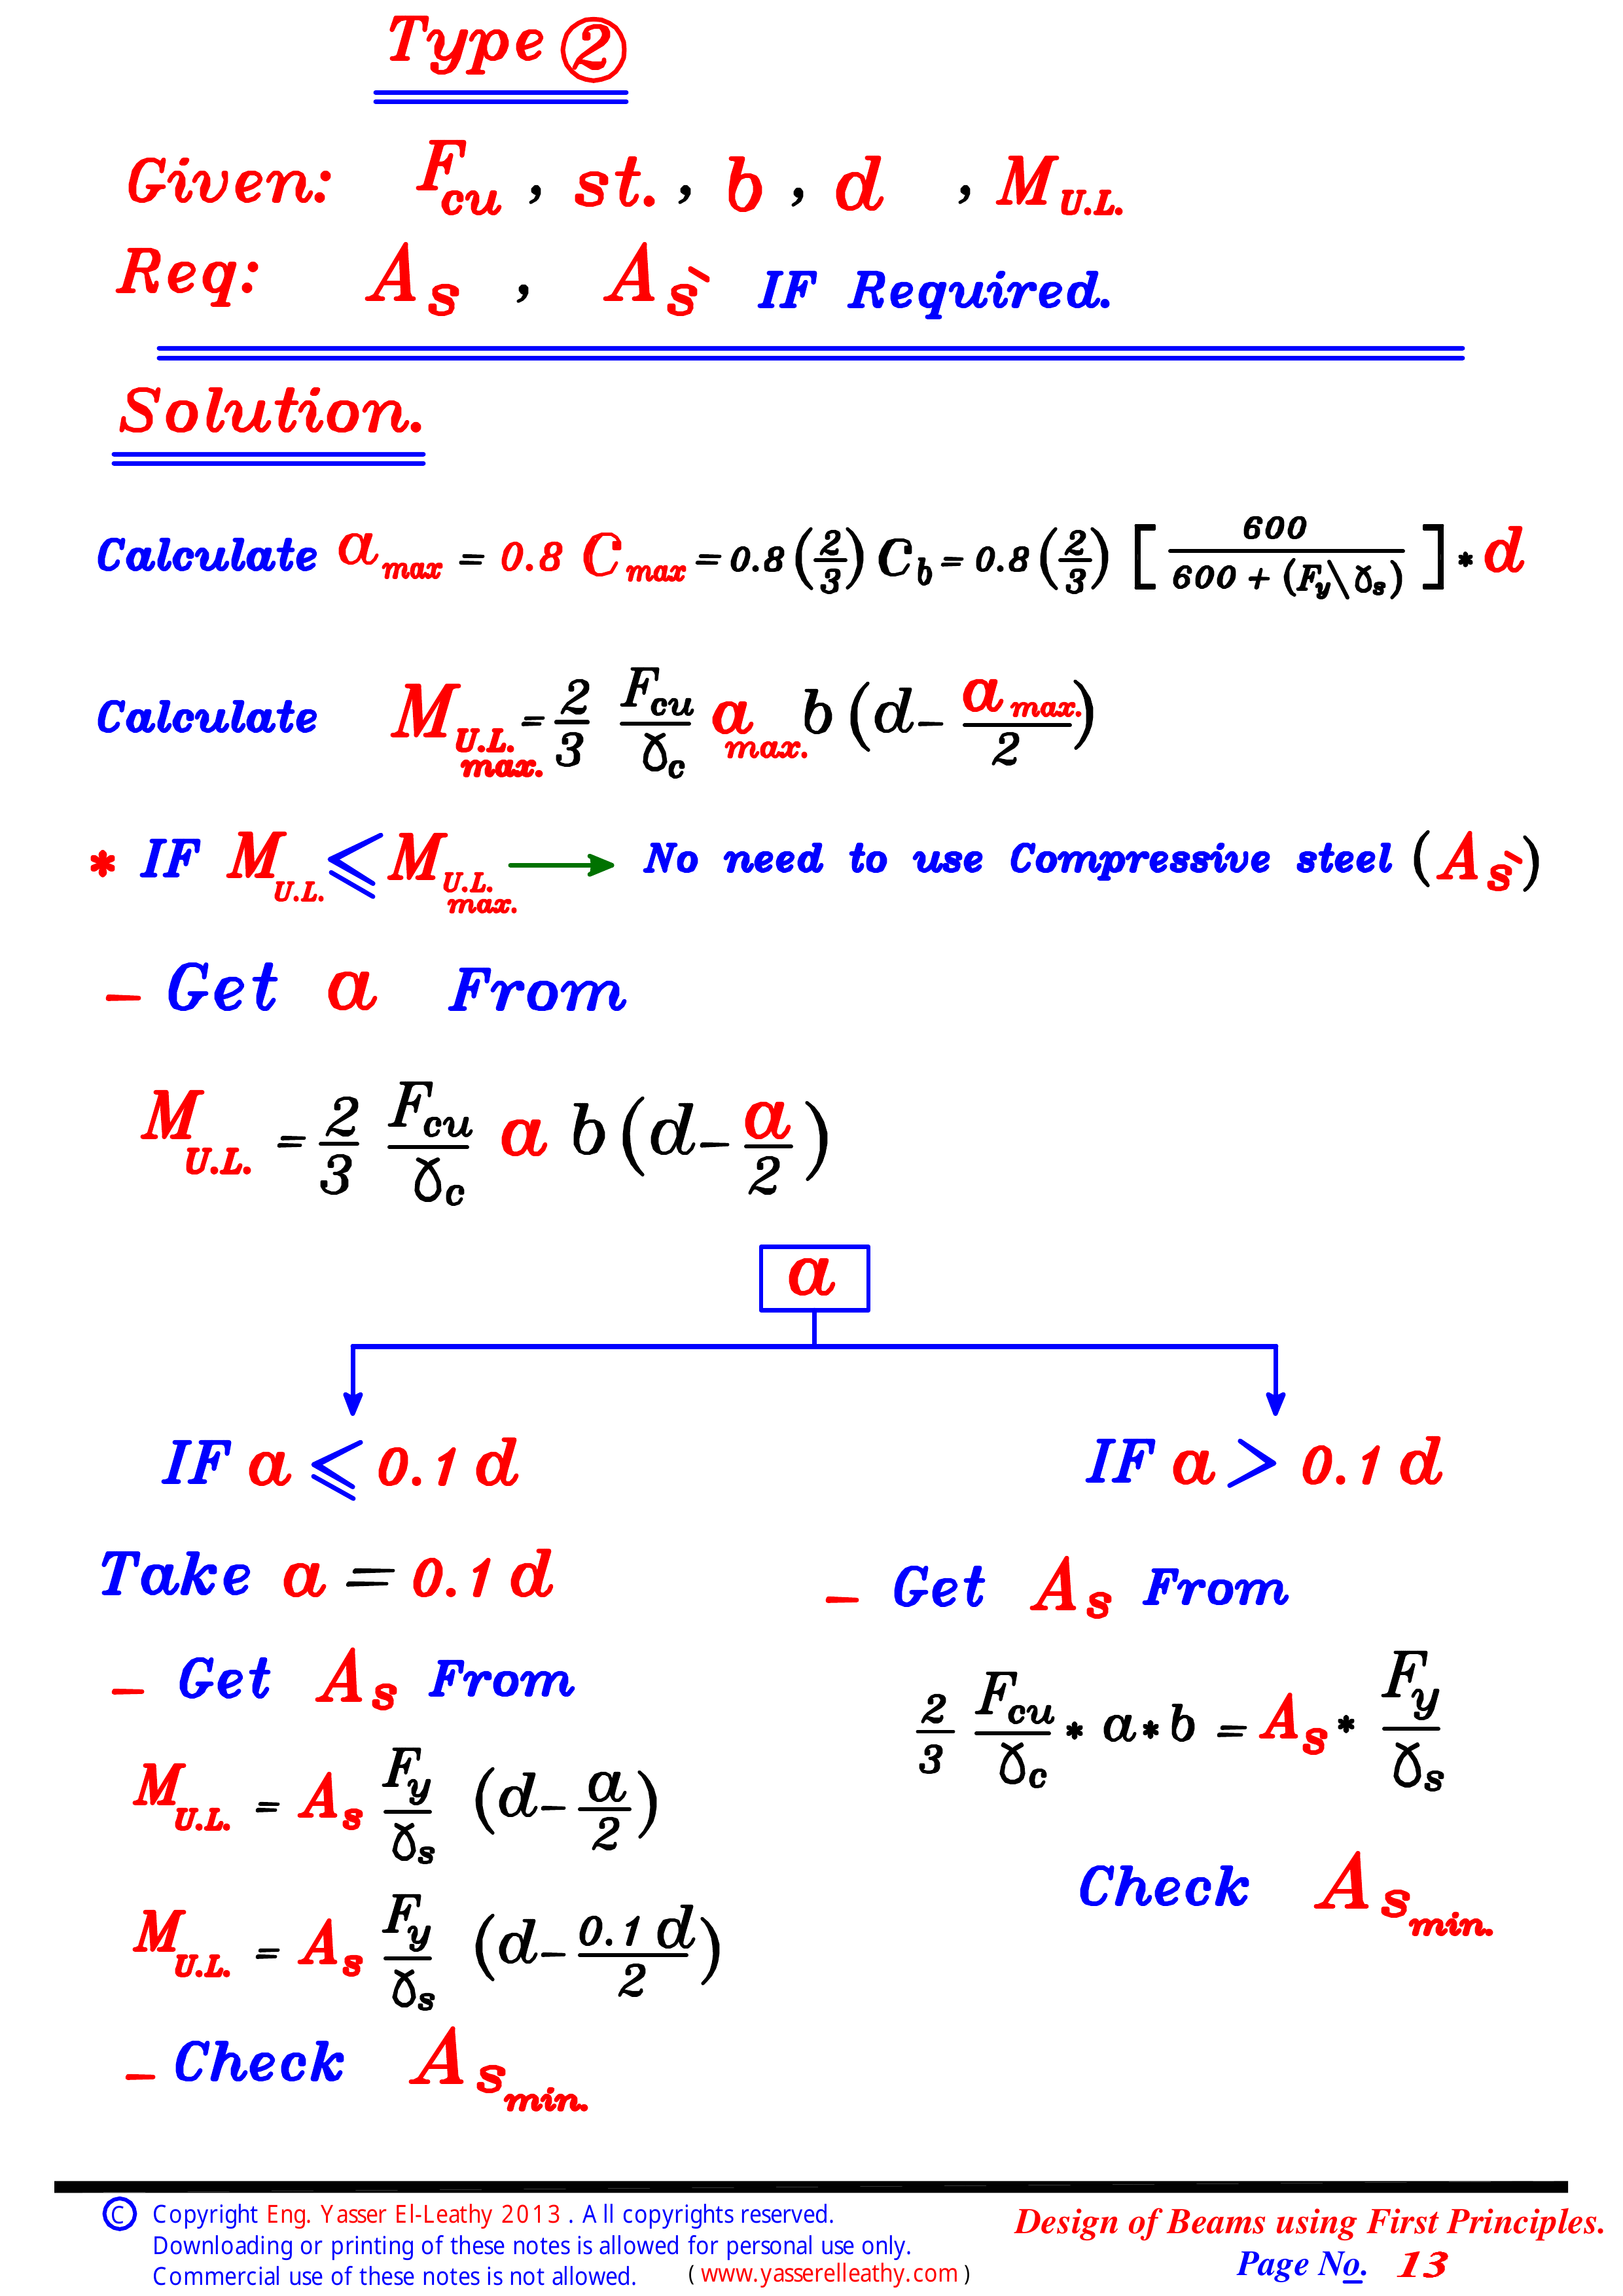 Type ②
Given: F_cu , st. , b , d , M_U.L.
Req: A_s , A_s` IF Required.
Solution.
Calculate a_max = 0.8 C_max = 0.8 (2/3) C_b = 0.8 (2/3) [ 600 / (600 + (F_y\ɣ_s)) ] * d
Calculate M_U.L. max. = 2/3 F_cu/ɣ_c a_max. b (d - a_max./2)
* IF M_U.L. ⩽ M_U.L. max. → No need to use Compressive steel (A_s`)
- Get a From
M_U.L. = 2/3 F_cu/ɣ_c a b (d - a/2)
a
IF a ⩽ 0.1 d
Take a = 0.1 d
- Get A_s From
M_U.L. = A_s F_y/ɣ_s (d - a/2)
M_U.L. = A_s F_y/ɣ_s (d - 0.1 d/2)
- Check A_s min.
IF a > 0.1 d
- Get A_s From
2/3 F_cu/ɣ_c * a * b = A_s * F_y/ɣ_s
Check A_s min.
© Copyright Eng. Yasser El-Leathy 2013 . All copyrights reserved.
Downloading or printing of these notes is allowed for personal use only.
Commercial use of these notes is not allowed. ( www.yasserelleathy.com )
Design of Beams using First Principles.
Page No. 13